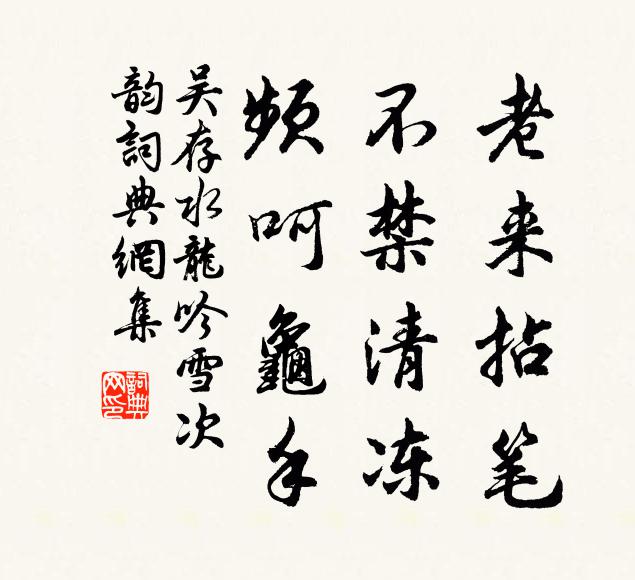 老来拈笔
不禁清冻
频呵龜手
吴存水龍吟雪次
韵詞典網集
詞典网印